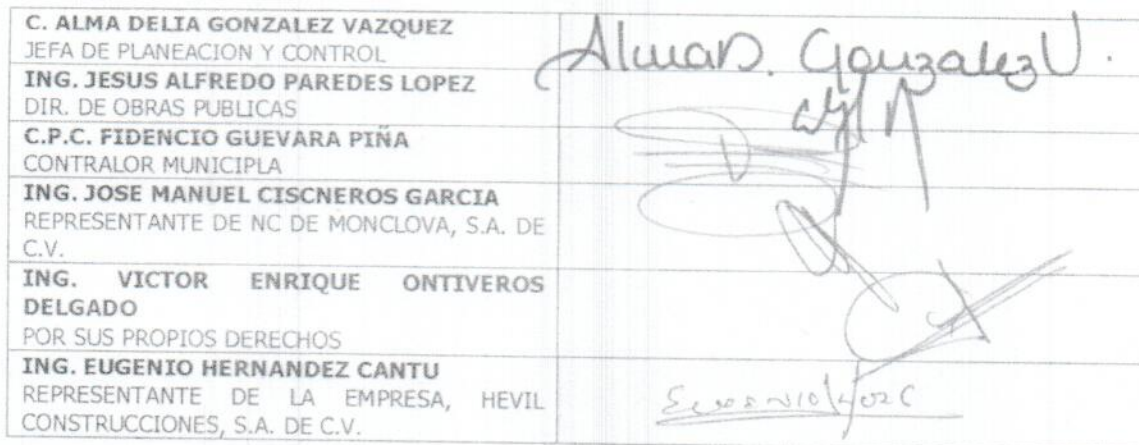 C. ALMA DELIA GONZALEZ VAZQUEZ
JEFA DE PLANEACION Y CONTROL
Alma D. Gonzalez V.
ING. JESUS ALFREDO PAREDES LOPEZ
DIR. DE OBRAS PUBLICAS
C.P.C. FIDENCIO GUEVARA PIÑA
CONTRALOR MUNICIPLA
ING. JOSE MANUEL CISCNEROS GARCIA
REPRESENTANTE DE NC DE MONCLOVA, S.A. DE
C.V.
ING. VICTOR ENRIQUE ONTIVEROS
DELGADO
POR SUS PROPIOS DERECHOS
ING. EUGENIO HERNANDEZ CANTU
REPRESENTANTE DE LA EMPRESA, HEVIL
CONSTRUCCIONES, S.A. DE C.V.